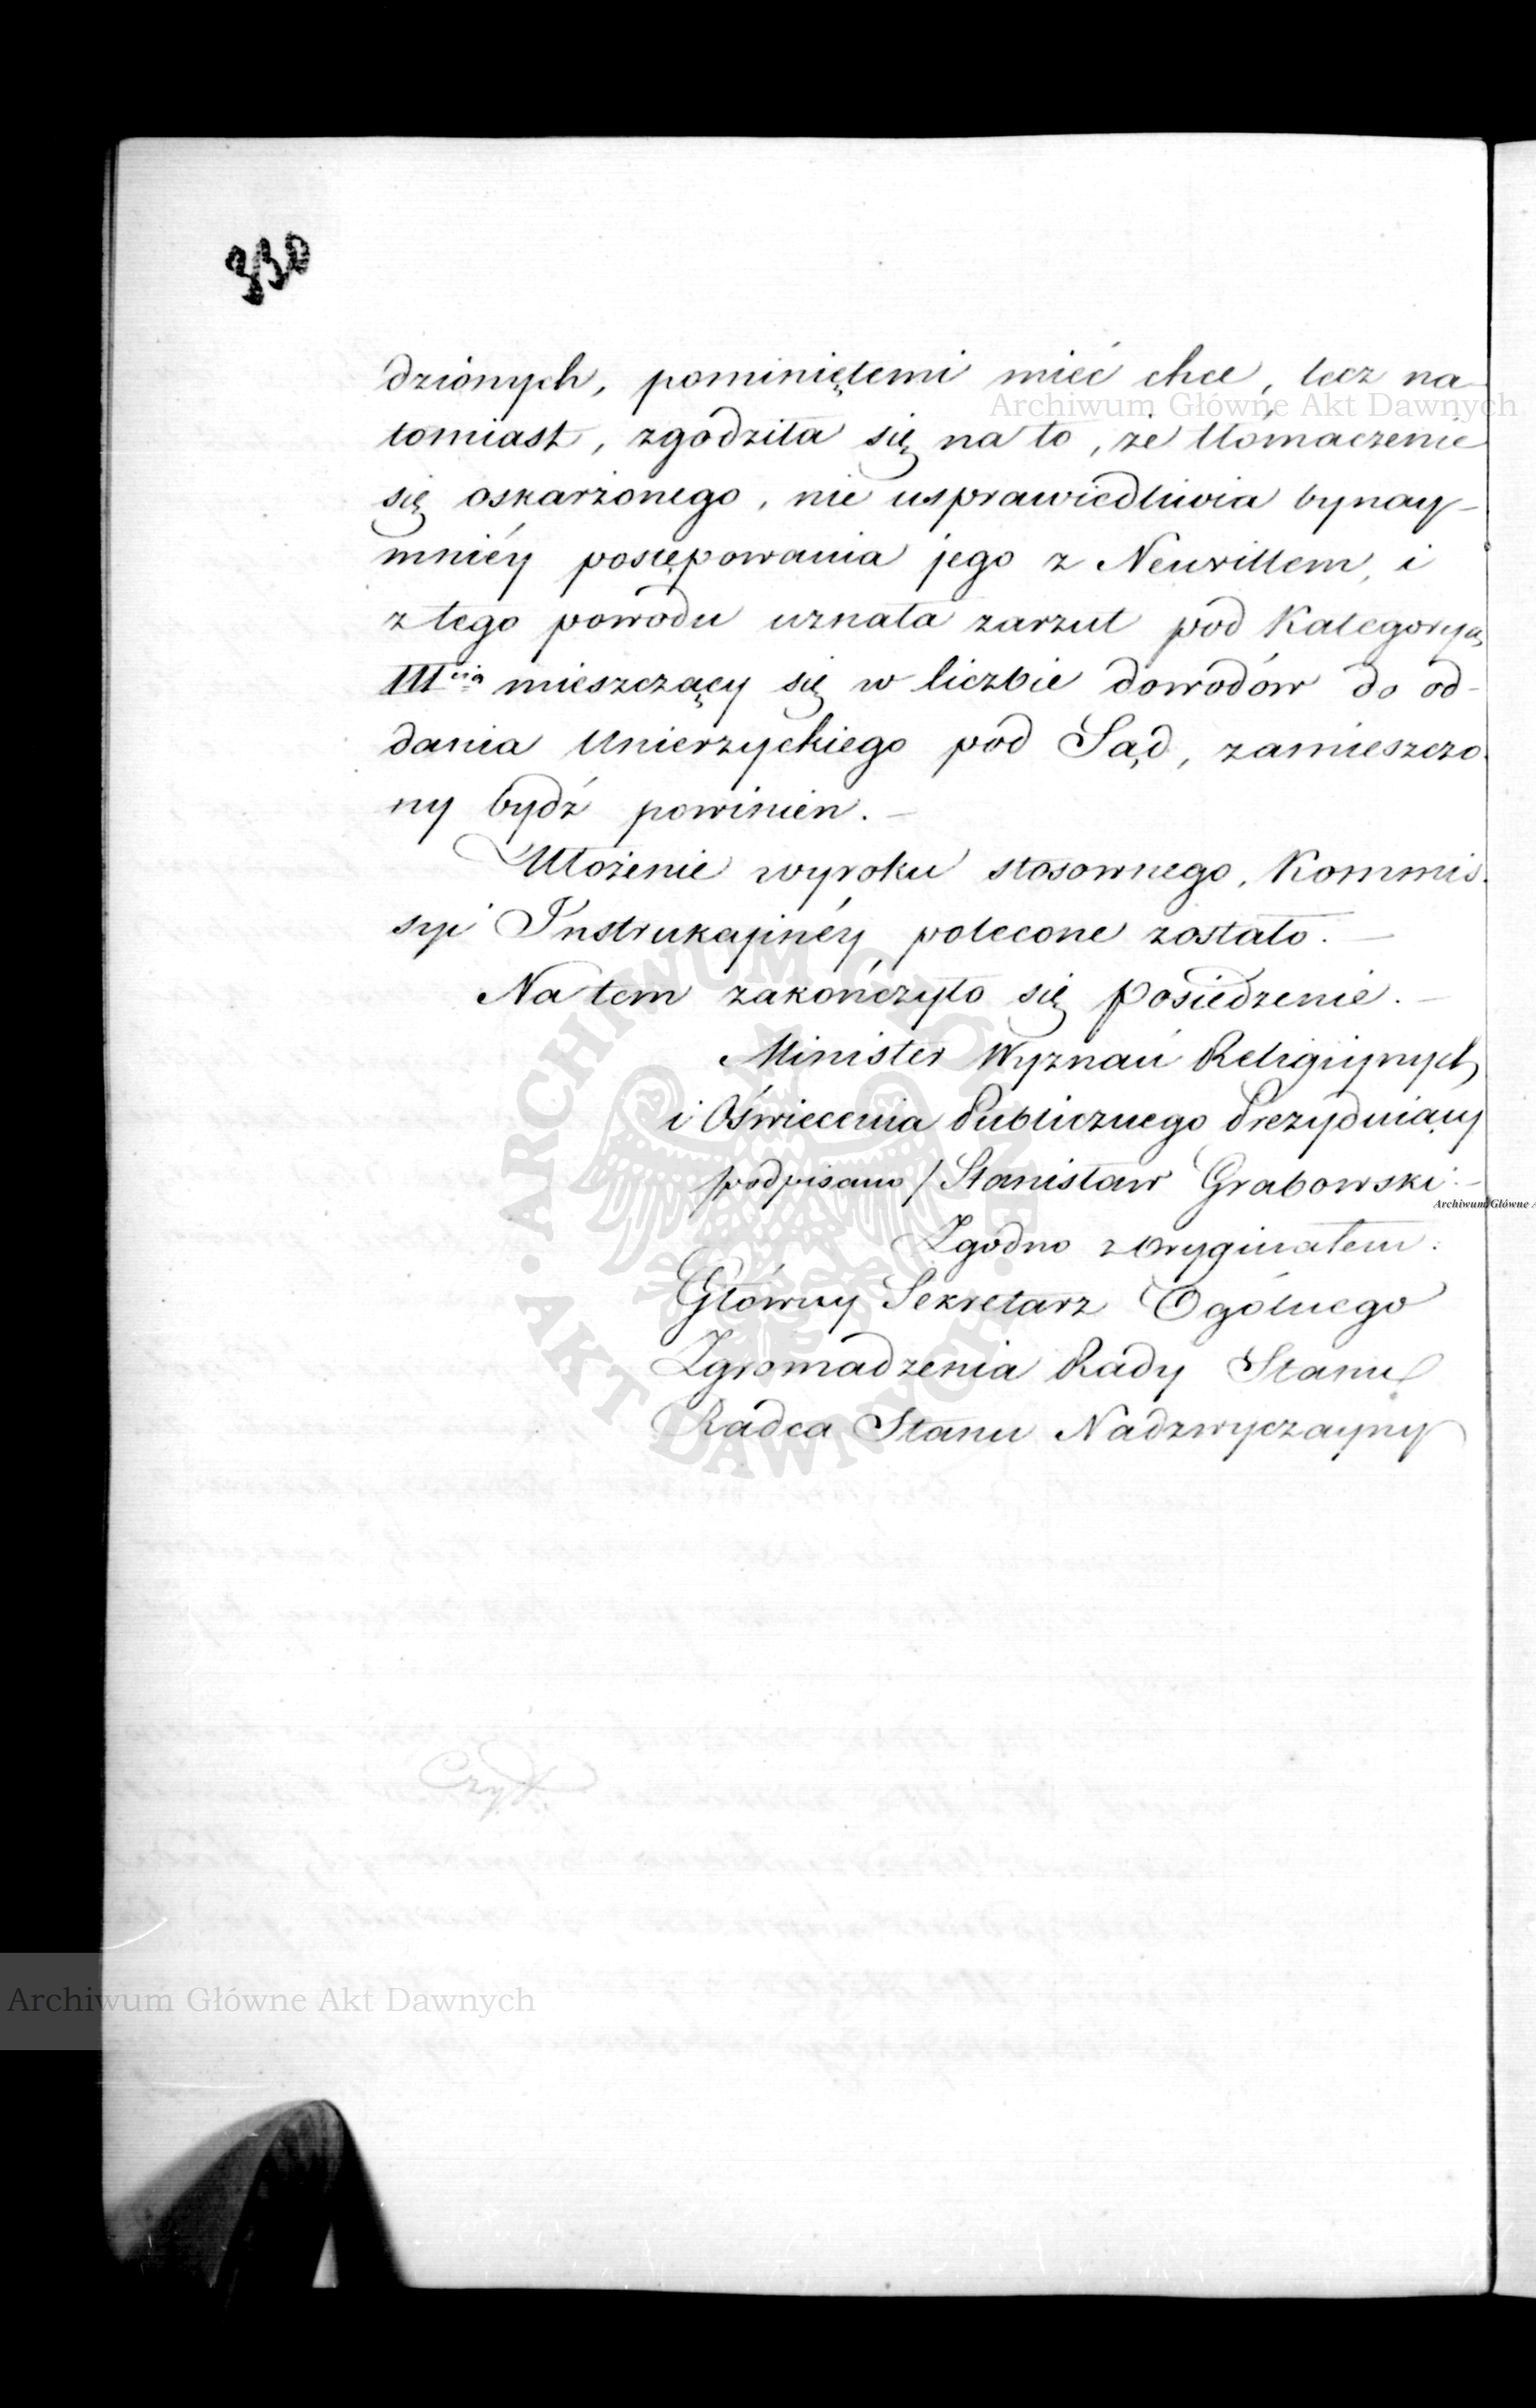 330
dzionych, pominiętemi mieć chce, lecz na-
Archiwum Główne Akt Dawnych
tomiast, zgodziła się na to, że tłómaczenie
się oskarżonego, nie usprawiedliwia bynay-
mniéy postępowania jego z Neuvillem, i
z tego powodu uznała zarzut pod Kategoryą
III cią mieszczący się w liczbie dowodów do od-
dania Unierzyckiego pod Sąd, zamieszczo-
ny bydź powinien. —
Ułożenie wyroku stosownego, Kommis-
syi Instrukcyinéy polecone zostało. —
Na tem zakończyło się Posiedzenie. —
Minister Wyznań Religiynych
i Oświecenia Publicznego Prezyduiący
podpisano / Stanisław Grabowski. —
Archiwum Główne A
Zgodno z oryginałem.
Główny Sekretarz Ogólnego
Zgromadzenia Rady Stanu
Radca Stanu Nadzwyczayny
ARCHIWUM GŁÓWNE · AKT DAWNYCH ·
Czyt.
Archiwum Główne Akt Dawnych